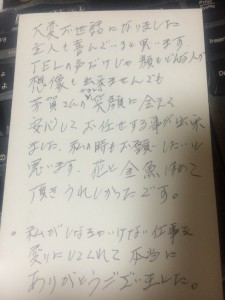 大変お世話になりました
主人も喜んでいると思います
TELの声だけじゃ顔もどんな人か
想像も出来ませんでも
さんの笑顔に会えて
安心してお任せする事が出来
ました、私の時もお願いしたいと
思います、花と金魚ほめて
頂きうれしかったです。
。私がしなくちゃいけない仕事を
変りにしてくれて本当に
ありがとうございました。